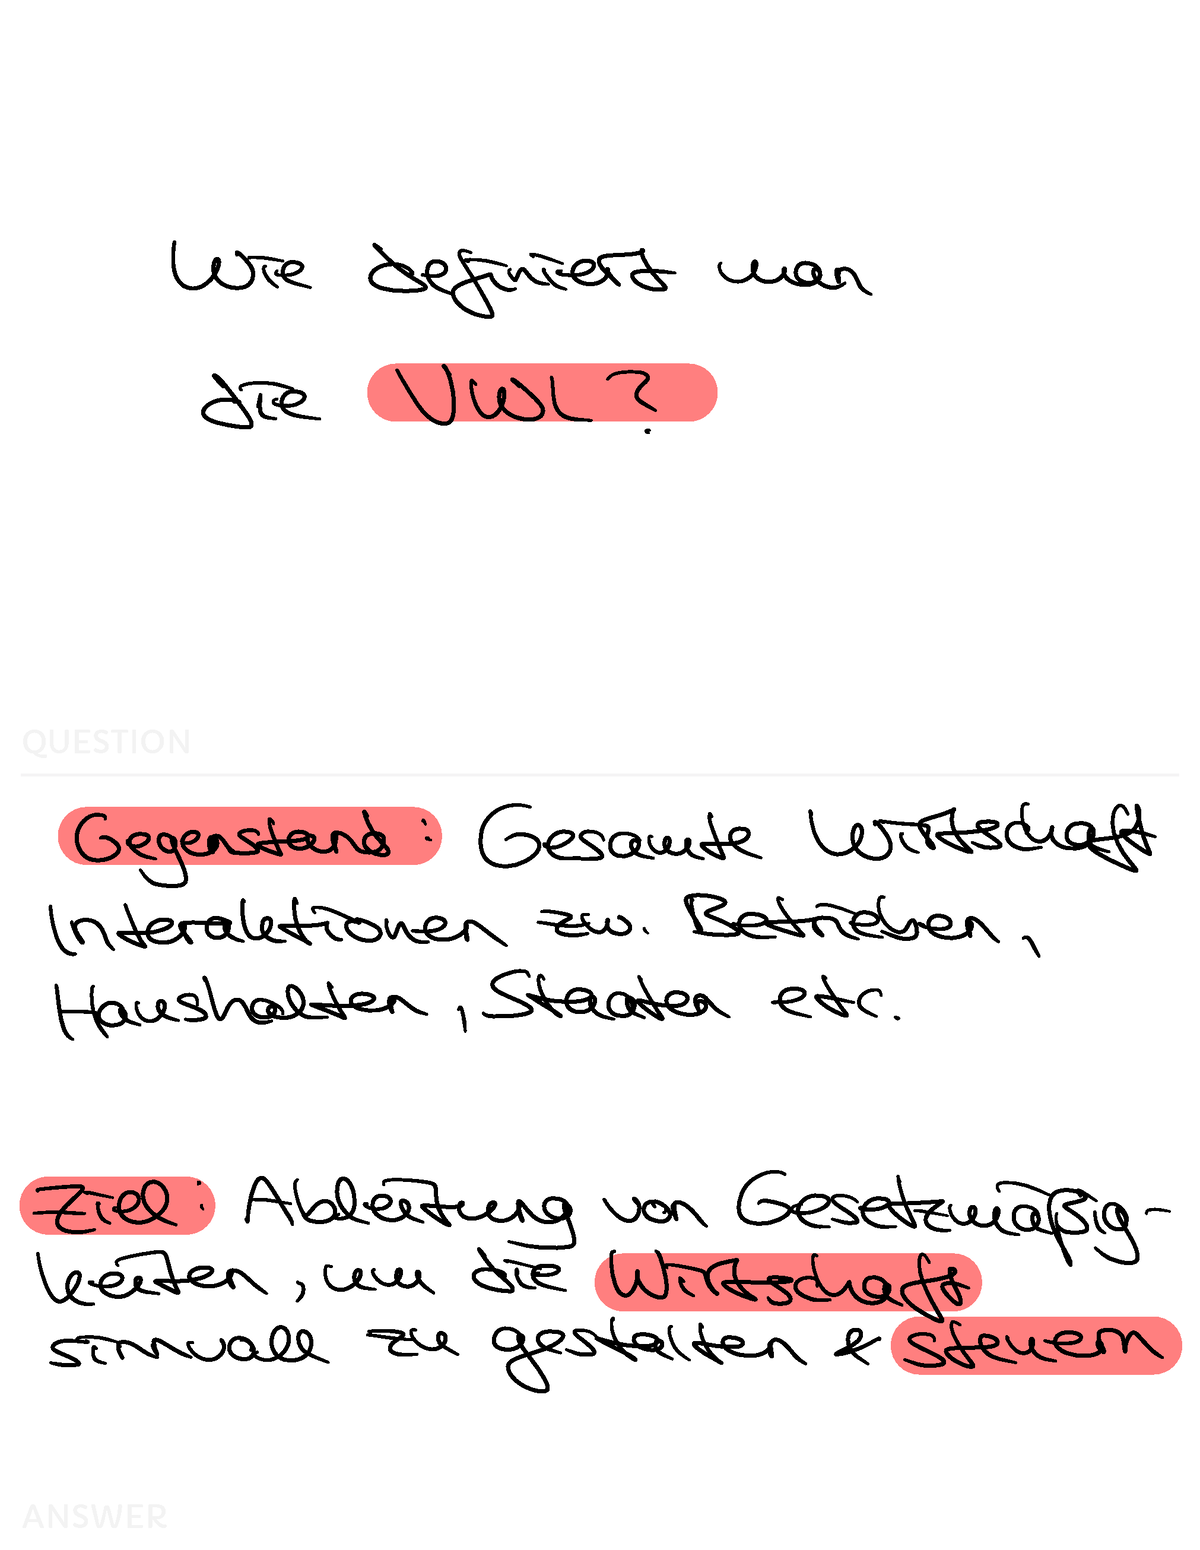 Wie definiert man
die VWL?
QUESTION
Gegenstand: Gesamte Wirtschaft
Interaktionen zw. Betrieben,
Haushalten, Staaten etc.
Ziel: Ableitung von Gesetzmäßig-
keiten, um die Wirtschaft
sinnvoll zu gestalten & steuern
ANSWER